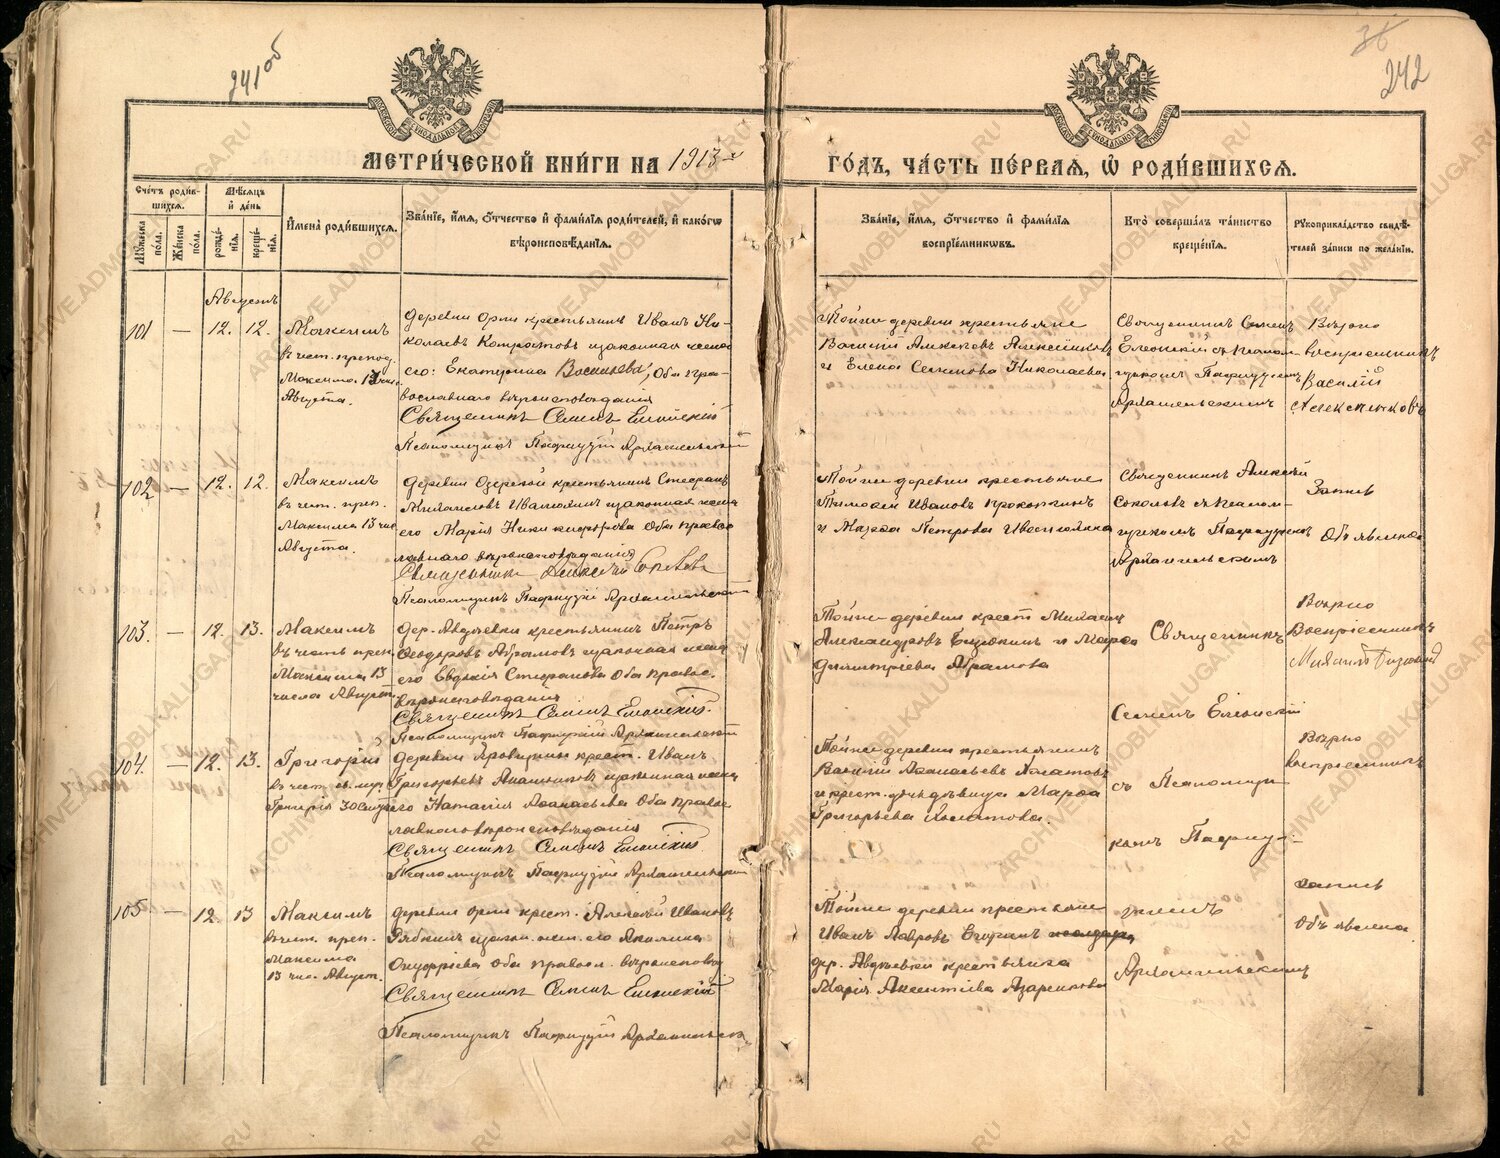 241об
36
242
МЕТРИ́ЧЕСКОЙ КНИ́ГИ НА 1913-й
ГО́ДЪ, ЧА́СТЬ ПЕ́РВАЯ, Ѡ҆ РОДИ́ВШИХСЯ.
Сче́тъ роди́в-
шихся.
Мꙋ́жеска пола.
Же́нска пола.
Мѣ́сяцъ
и҆ де́нь
рожде́-
нїя.
креще́-
нїя.
И҆мена̀ роди́вшихся.
Зва́нїе, и҆́мя, ѻ҆́тчество и҆ фами́лїя роди́телей, и҆ како́гѡ
вѣроисповѣ́данїя.
Зва́нїе, и҆́мя, ѻ҆́тчество и҆ фами́лїя
воспрїе́мникѡвъ.
Кто̀ соверша́лъ та́инство
креще́нїя.
Рꙋкоприкла́дство свидѣ́-
телей за́писи по жела́нїю.
Августъ
101 — 12. 12.
Максимъ
в чест. препод.
Максима 13 чис.
Августа.
деревни Орли крестьянинъ Иванъ Ни-
колаевъ Кондратовъ и законная жена
его: Екатерина Васильева, оба пра-
вославнаго вѣроисповѣданія
Священникъ Симеонъ Елеонскій
Псаломщикъ Пафнутій Архангельскій
Тойже деревни крестьяне
Василій Алексѣевъ Алексѣиковъ
и Елена Семенова Николаева
Священникъ Симеонъ
Елеонскій съ псалом-
щикомъ Пафнутіемъ
Архангельскимъ
Вѣрно
воспріемникъ
Василій
102 — 12. 12.
Максимъ
в чест. преп.
Максима 13 чис.
Августа.
деревни Озерской крестьянинъ Стефанъ
и законная жена
его Марія Никифорова оба право-
славнаго вѣроисповѣданія
Священникъ Алексѣй Соколовъ
Псаломщикъ Пафнутій Архангельскій
Тойже деревни крестьяне
Тимофей Ивановъ Прокопкинъ
и Марфа Петрова
Священникъ Алексѣй
Соколовъ съ псалом-
щикомъ Пафнутіемъ
Архангельскимъ
Запись
объявлена
103. — 12. 13.
Максимъ
въ честь преп.
Максима 13
числа Август.
дер. Авдѣевки крестьянинъ Петръ
Ѳеодоровъ Абрамовъ и законная жена
его Евдокія Стефанова оба правос.
вѣроисповѣданія
Священникъ Симеонъ Елеонскій.
Псаломщикъ Пафнутій Архангельскій
Тойже деревни крест. Михаилъ
Александровъ и Марѳа
Димитріева Абрамова
Священникъ
Симеонъ Елеонскій
Вѣрно
Воспріемникъ
Михаилъ
104. — 12. 13.
Григорій
в чест. св. муч.
Григорія 30 Сент.
деревни крест. Иванъ
Григорьевъ и законная жена
его Наталія Аѳанасьева оба право-
славнаго вѣроисповѣданія
Священникъ Симеонъ Елеонскій.
Псаломщикъ Пафнутій Архангельскій
Тойже деревни крестьянинъ
Василій Аѳанасьевъ
и крест. дѣвица Марѳа
Григорьева
съ Псаломщи-
комъ Пафну-
Вѣрно
воспріемникъ
105. — 12. 13
Максимъ
в чест. преп.
Максима
13 чис. Август.
деревни Орли крест. Алексѣй Ивановъ
Рябкинъ и закон. жен. его Акилина
Онуфріева оба правосл. вѣроисповѣд.
Священникъ Симеонъ Елеонскій
Псаломщикъ Пафнутій Архангельск.
Тойже деревни крестьяне
Иванъ Лавровъ
дер. Авдѣевки крестьянка
Марія Аксентіева Азаренкова
тіемъ
Архангельскимъ
Запись
объявлена
ARCHIVE.ADMOBLKALUGA.RU